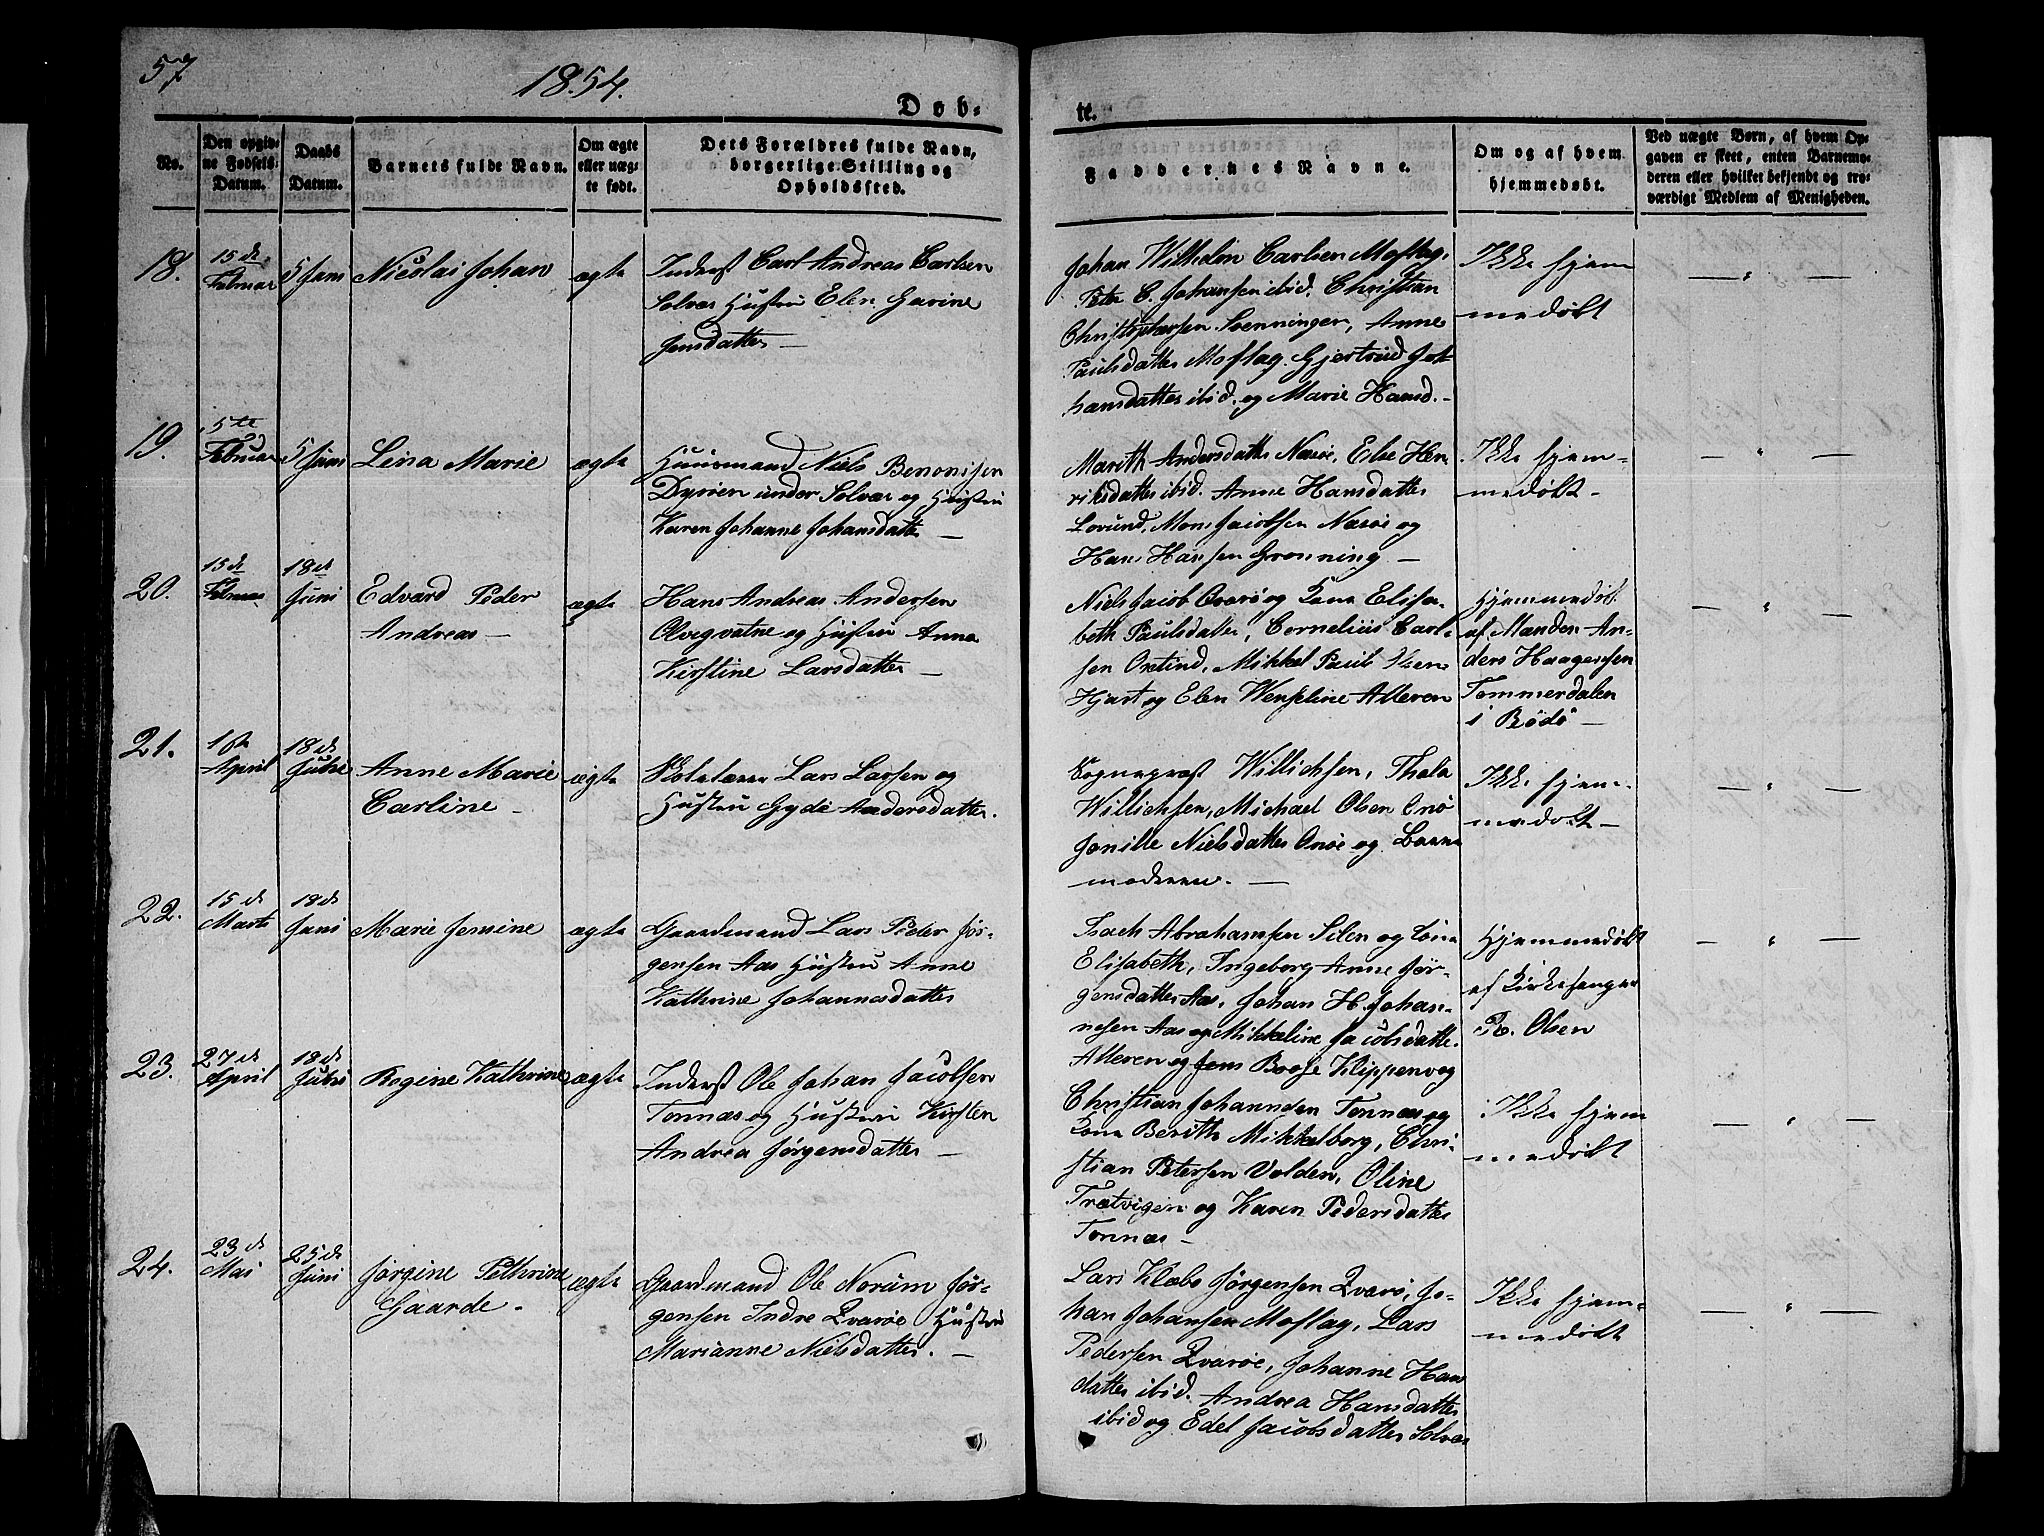 57
1854.
Døb-
te.
No.
Den opgiv-
ne Fødsels-
Datum.
Daabs
Datum.
Barnets fulde Navn.
Om ægte
eller uæg-
te født.
Dets Forældres fulde Navn,
borgerlige Stilling og
Opholdssted.
Faddernes Navne.
Om og af hvem
hjemmedøbt.
Ved uægte Børn, af hvem Op-
gaven er skeet, enten Barnemo-
deren eller hvilket bekjendt og tro-
værdigt Medlem af Menigheden.
18.
15de
Februar
5 Juni
Nicolai Johan
ægte
Inderst Carl Andreas Carlsen
Solvær Hustru Elen Gurine
Jensdatter —
Johan Wilhelm Carlsen Moflag,
Peter C. Johansen ibid. Christian
Christophersen Svenningen, Anne
Paulsdatter Moflag. Gjertrud Jo-
hansdatter ibid. og Marie Hansd. -
Ikke hjem
medøbt
19.
5te
Februar
5 Juni
Lina Marie
ægte
Huusmand Niels Benonisen
under Solvær og Hustru
Karen Johanne Johansdatter —
Marith Andersdatter Næsøe, Else Hen-
riksdatter ibid. Anne Hansdatter
Lovund, Mons Jacobsen Næsøe og
Hans Hansen Grønning —
Ikke hjem-
medøbt -
20.
15de
Februar
18de
Juni
Edvard Peder
Andreas —
ægte
Hans Andreas Andersen
Olvegvatne og Hustru Anne
Kirstine Larsdatter —
Niels Jacob og Kone Elisa-
beth Paulsdatter, Cornelius Carl-
sen Oxtind, Mikkel Paul
Hjart og Elen Wenseline Alteren
Hjemmedøbt
af Manden An-
ders Haagensen
Tømmerdalen
i Bodø —
21.
16de
April
18de
Julie
Anne Marie
Carline -
ægte
Skolelærer Lars Larsen og
Hustru Gyde Andersdatter.
Sognepræst Willichsen, Thala
Willichsen, Michael Olsen Onø
Jonille Nielsdatter Onøe og Barne
moderen. —
Ikke hjem-
medøbt —
22.
15de
Marts
18de
Juni
Marie Jensine
ægte
Gaardmand Lars Peder Jør-
gensen Aas Hustru Anne
Kathrine Johannesdatter
Isach Abrahamsen Silen og Kone
Elisabeth, Ingeborg Anne Jør-
gensdatter Aas, Johan H. Johan-
nesen Aas og Mikkeline Jacobsdatter
Alteren og Jens Klippenvog
Hjemmedøbt
af Kirkesanger
R. Olsen
23.
27de
April
18de
Julie
Regine Kathrine
ægte
Inderst Ole Johan Jacobsen
Tonnæs og Hustru Kirsten
Andrea Jørgensdatter —
Christian Johannesen Tonnæs og
Kone Berith Mikkelborg, Chri-
stian Petersen Valden, Oline
Trætvigen og Karen Pedersdatter
Tonnæs —
Ikke hjem
medøbt
24.
23de
Mai
25de
Juni
Jørgine Pethrine
Gaarde -
ægte
Gaardmand Ole Norum Jør-
gensen Indre Qvarøe Hustru
Marianne Nielsdatter. —
Lars Klæbo Jørgensen Qvarø, Jo-
han Johansen Moflag, Lars
Pedersen Qvarøe, Johanne Hans
datter ibid. Andrea Hansdatter
ibid og Edel Jacobsdatter Solvær
Ikke hjem-
medøbt